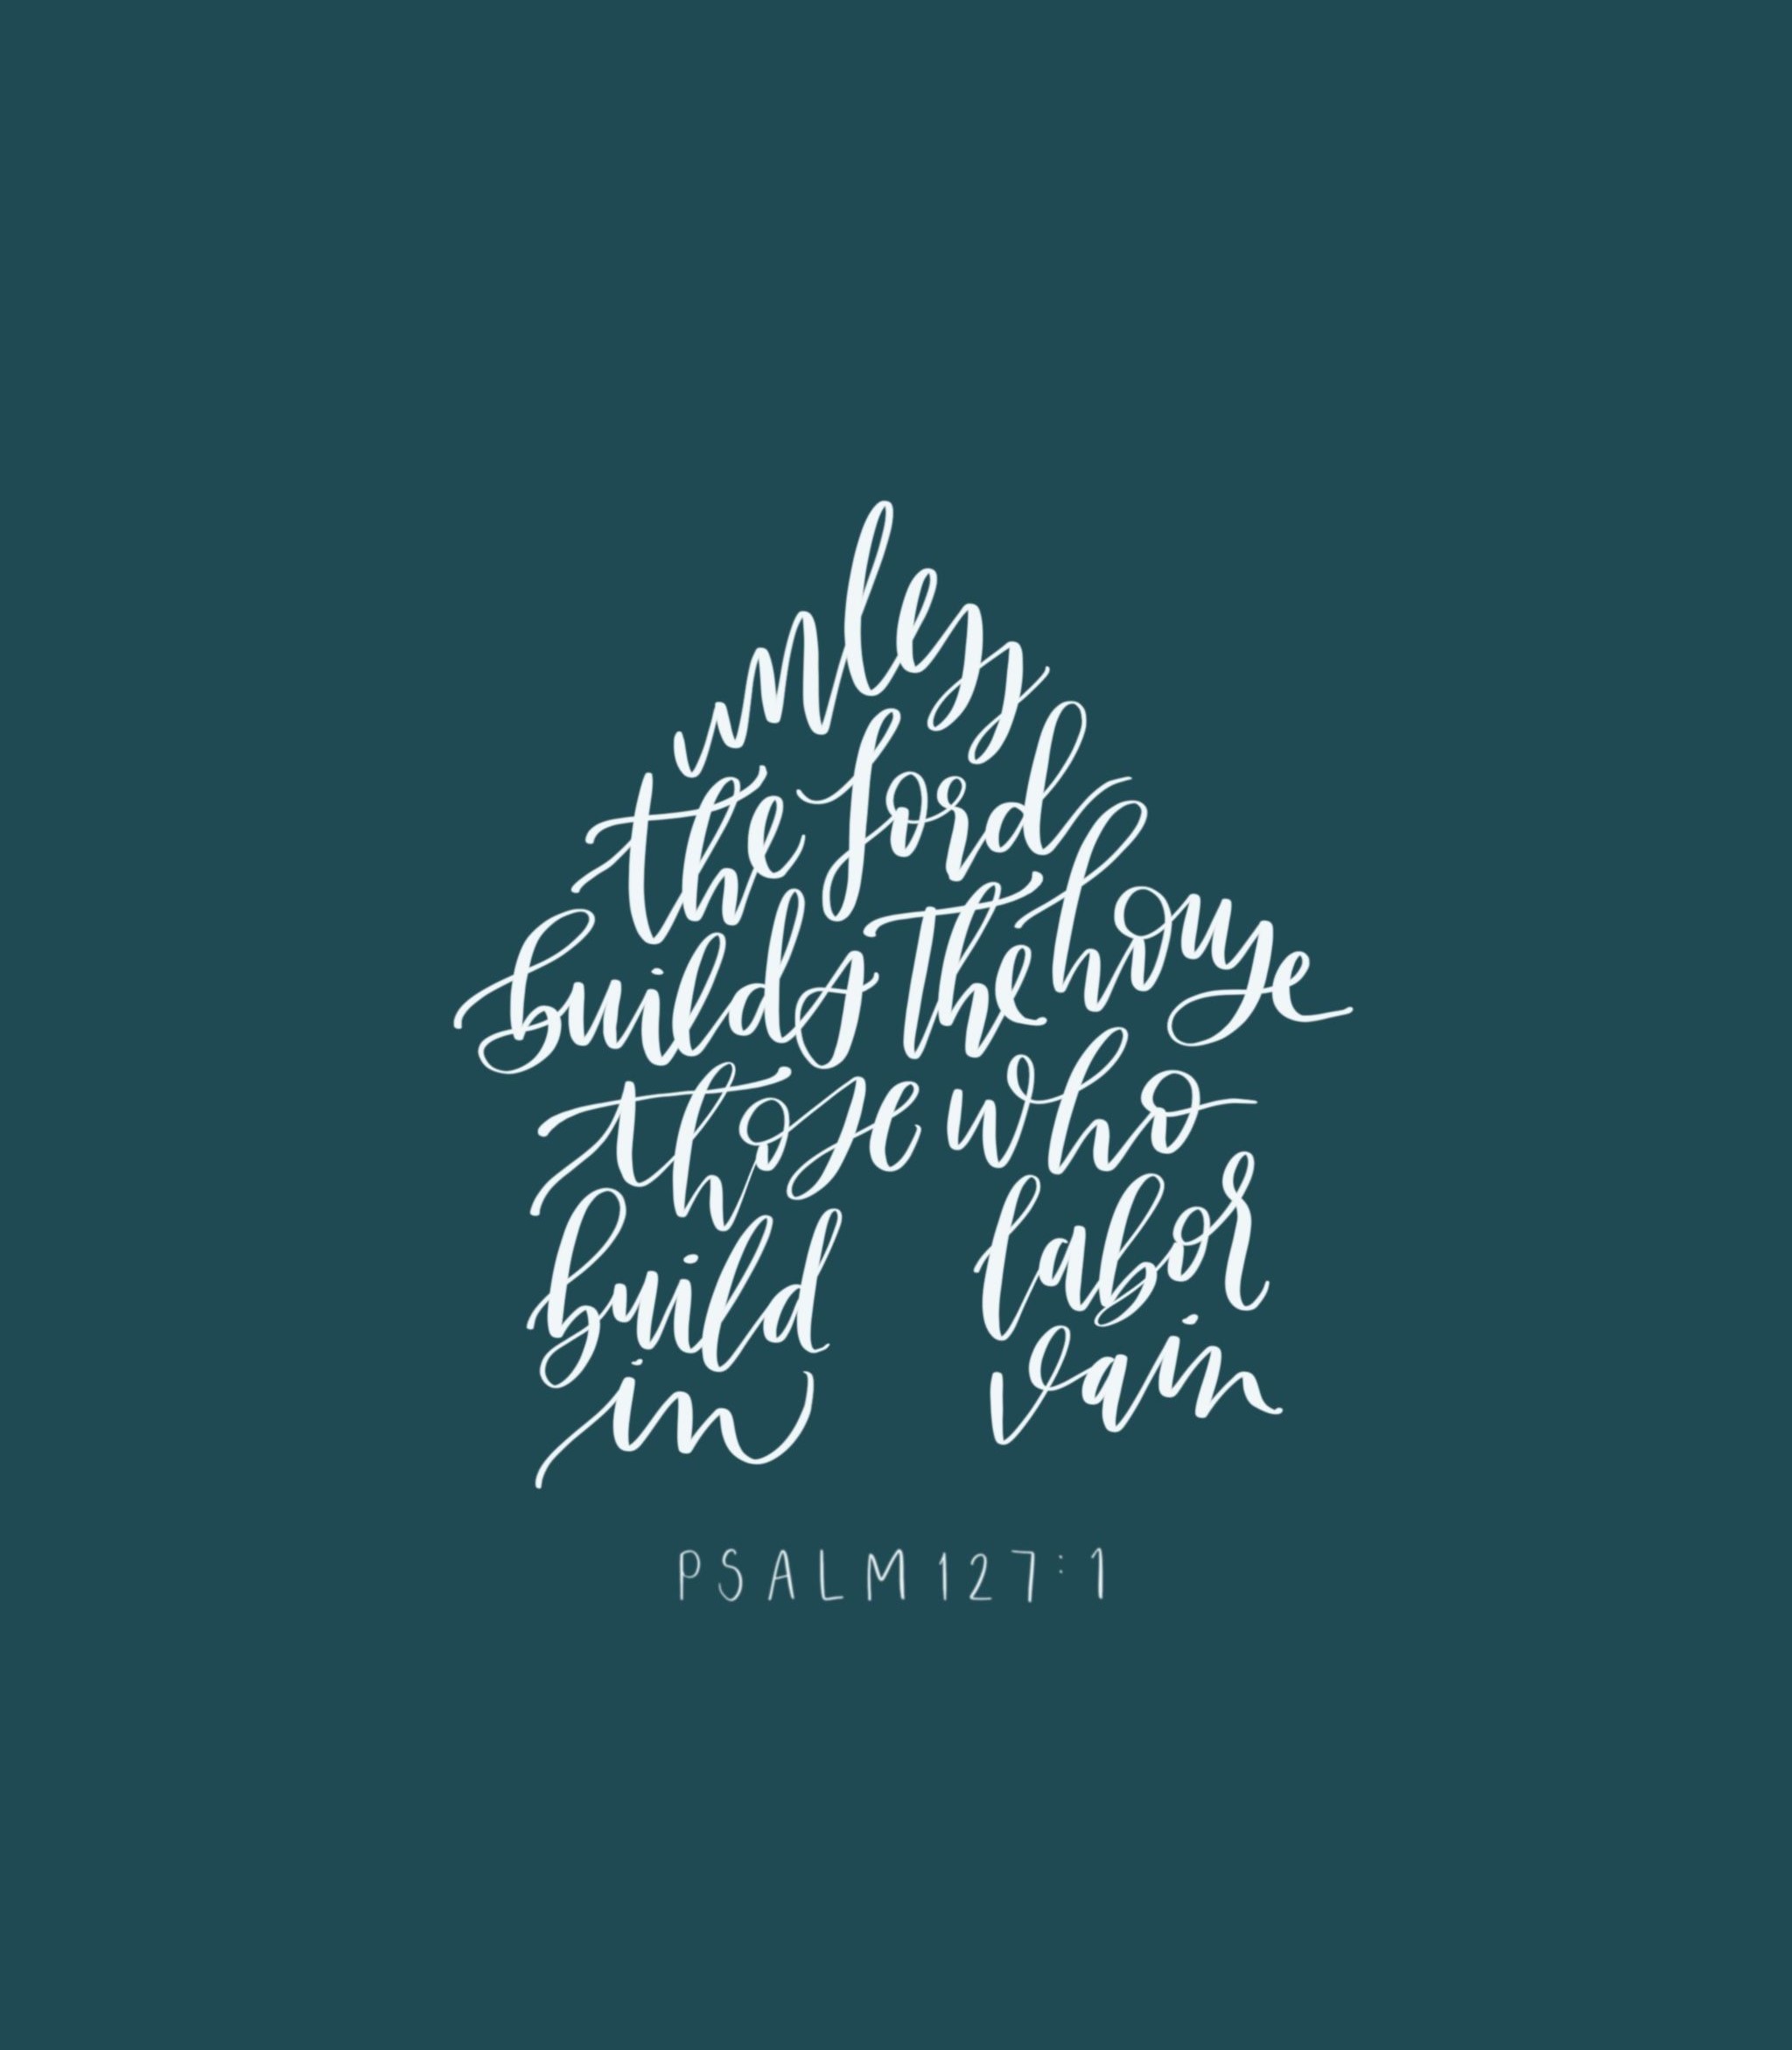 unless
the Lord
builds the house
those who
build labor
in vain
PSALM 127:1